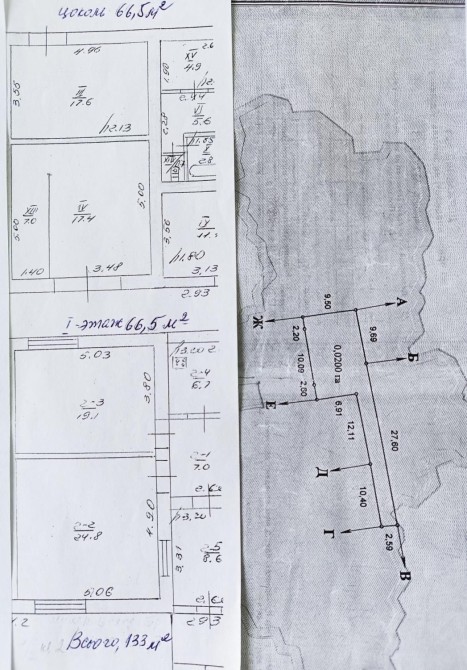 Цоколь 66,5м²
4.96
3,55
III
17.6
12.13
1.90
XV
4.9
2.6
2.94
VI
5.6
2.28
1.85
V
2.8
XIV
XIII
7.0
5.00
IV
17.4
5.00
1.40
3.48
3,56
IX
11.80
3,13
2.93
I-этаж 66,5м²
5.03
2-3
19.1
3.80
13.20
2-4
6.7
2-1
7.0
2-2
24.8
4.90
13.20
3,31
9.6
5,06
2.93
Всього, 133м²
А
9,50
9,69
Ж
2,20
Б
0,0200 га
10,09
2,60
Е
6,91
27,60
12,11
Д
10,40
Г
2,59
В